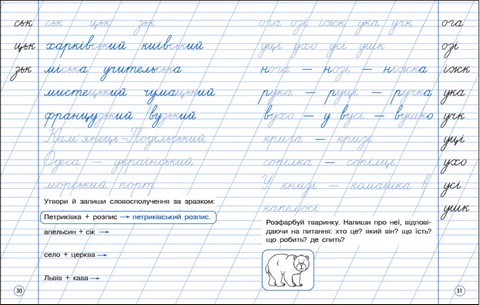 ськ ськ цьк зьк
цьк харківський київський
зьк міська учительська
мистецький чумацький
французький вузький
Кам'янець-Подільський
Одеса – український
морський порт
Утвори й запиши словосполучення за зразком:
Петриківка + розпис → петриківський розпис.
апельсин + сік →
село + церква →
Львів + кава →
30
ога озі іжк ука учк ога
уці ухо усі ушк озі
нога – нозі – ніжка іжк
рука – руці – ручка ука
вухо – у вусі – вушко учк
криза – кризі уці
сопілка – сопілці ухо
У книзі – комашка в усі
капелюсі ушк
Розфарбуй тваринку. Напиши про неї, відпові-
даючи на питання: хто це? який він? що їсть?
що робить? де спить?
31